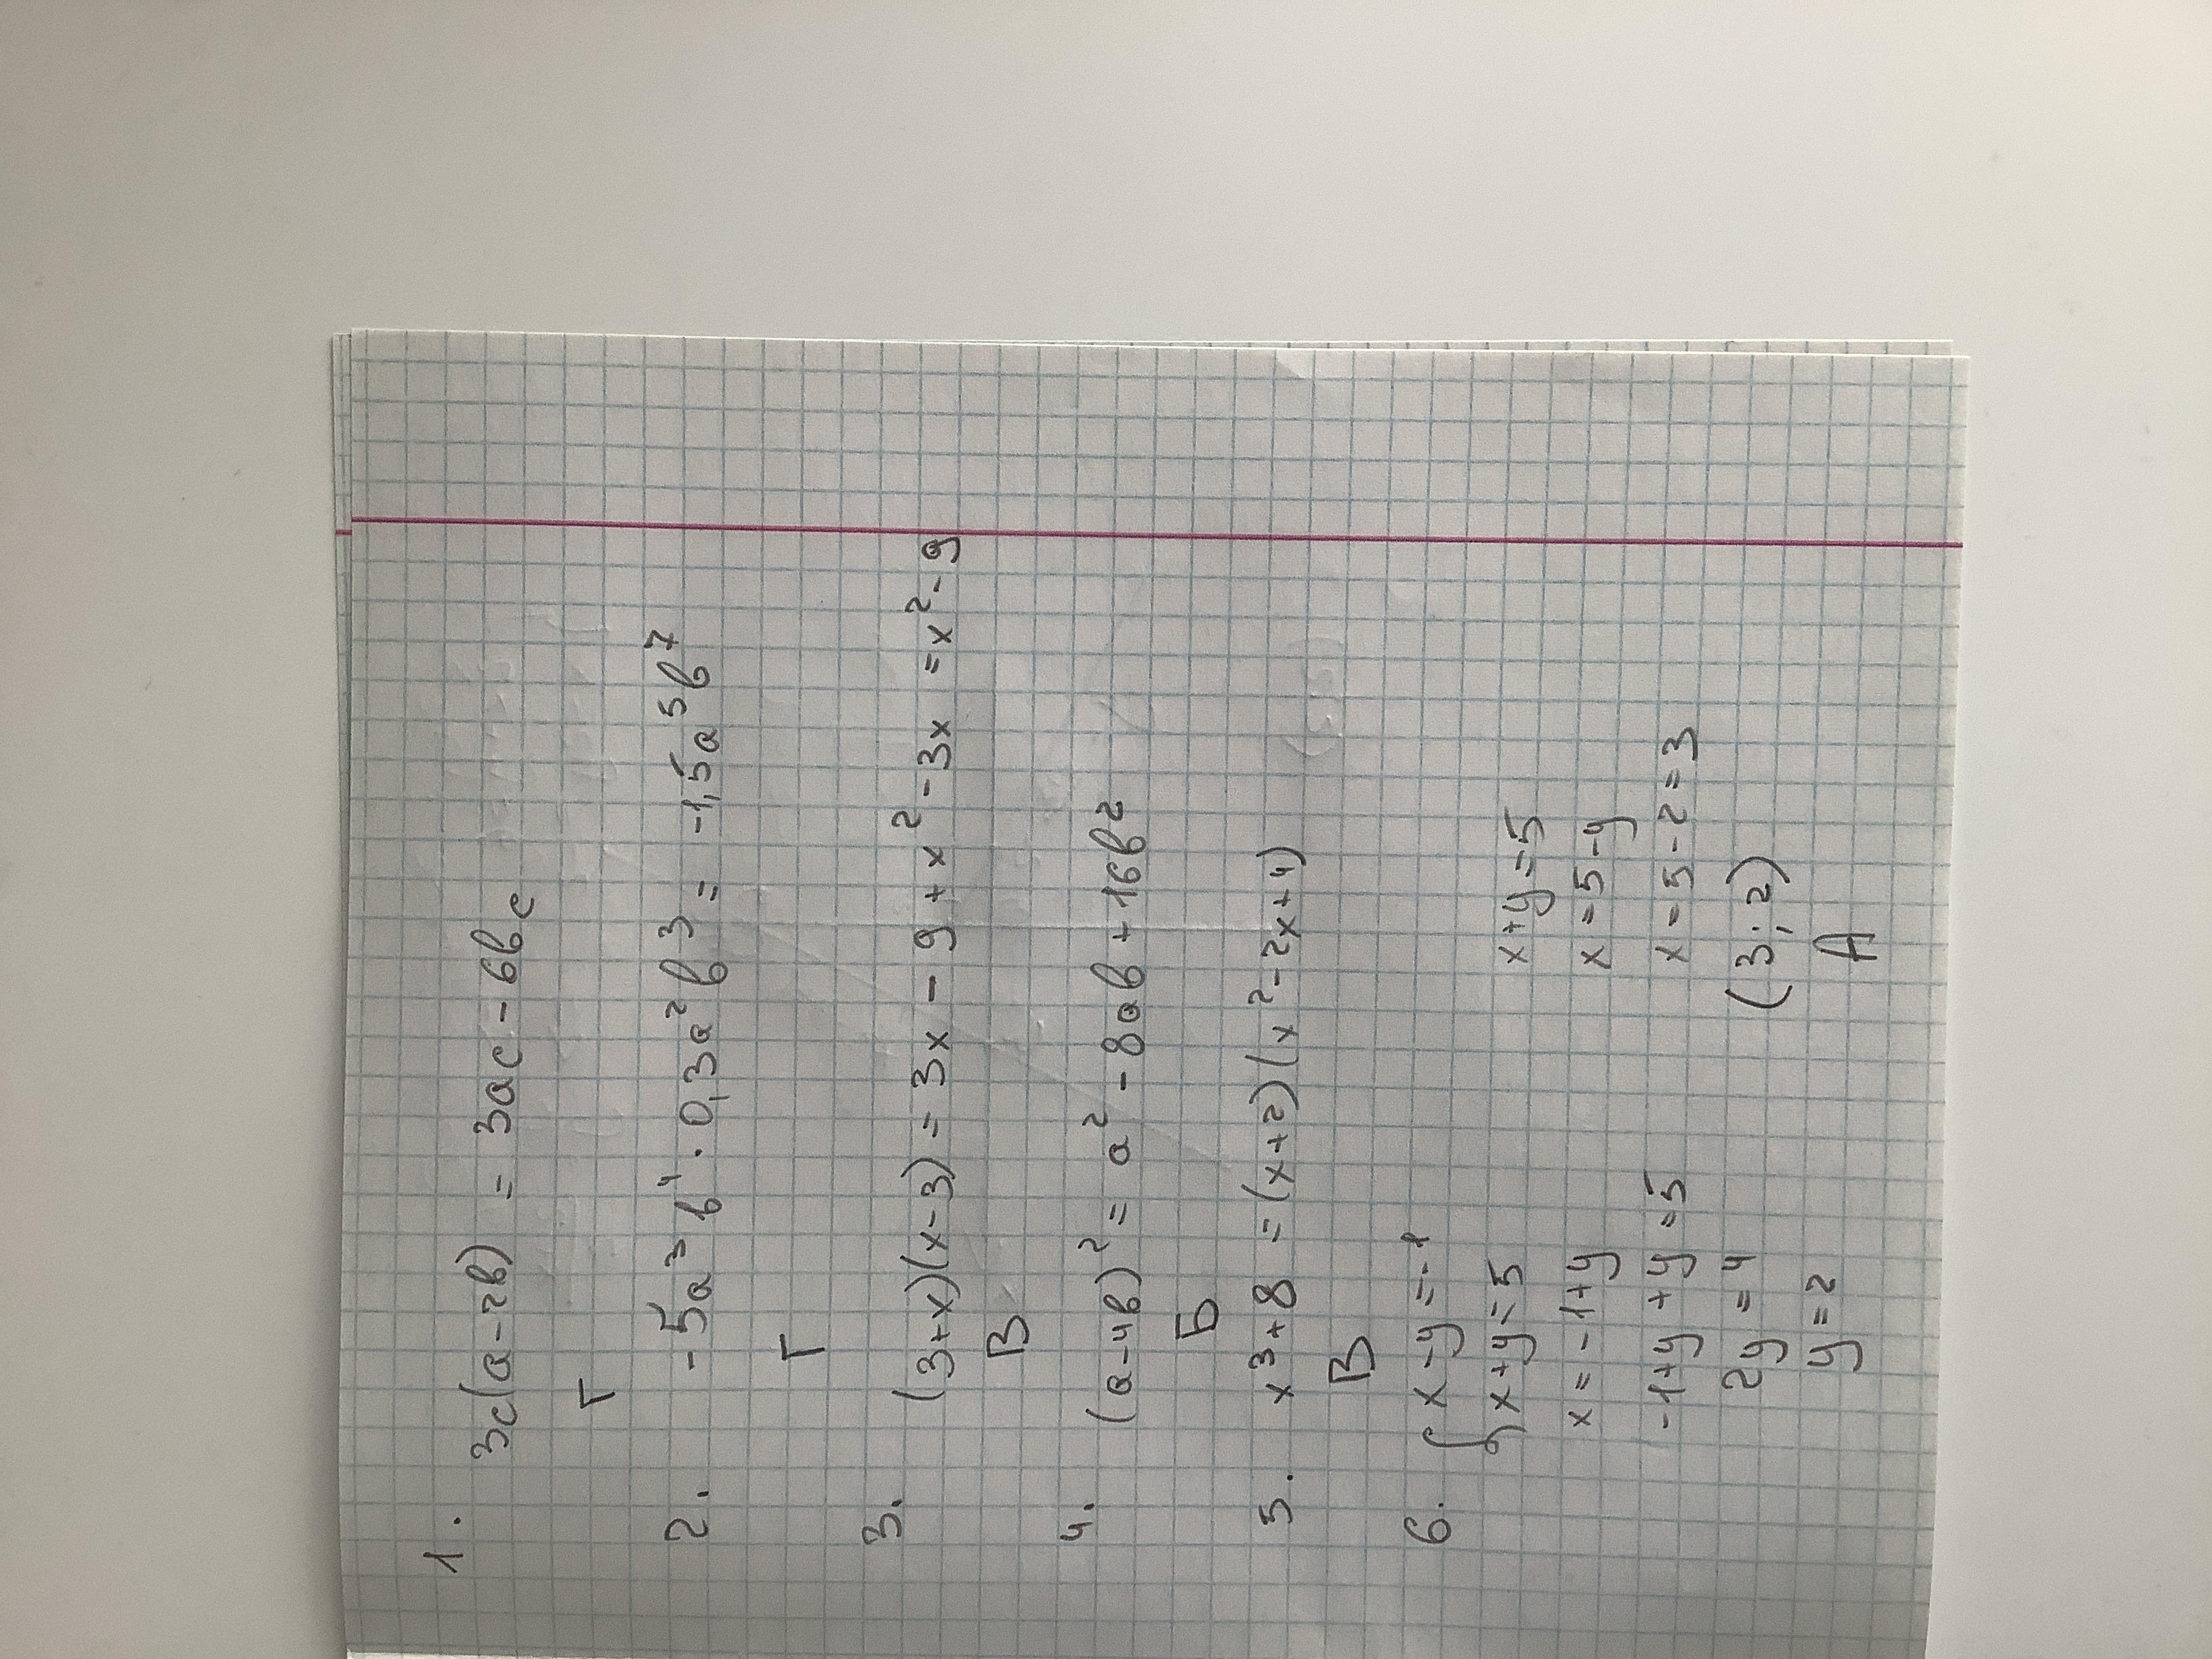 1. 3c(a-2b) = 3ac - 6bc
Г
2. -5a³b⁴ · 0,3a²b³ = -1,5a⁵b⁷
Г
3. (3+x)(x-3) = 3x - 9 + x² - 3x = x² - 9
В
4. (a-4b)² = a² - 8ab + 16b²
Б
5. x³+8 = (x+2)(x²-2x+4)
В
6. { x-y=-1
x+y=5 x+y=5
x=-1+y x=5-y
-1+y+y=5 x=5-2=3
2y=4 (3;2)
y=2 А